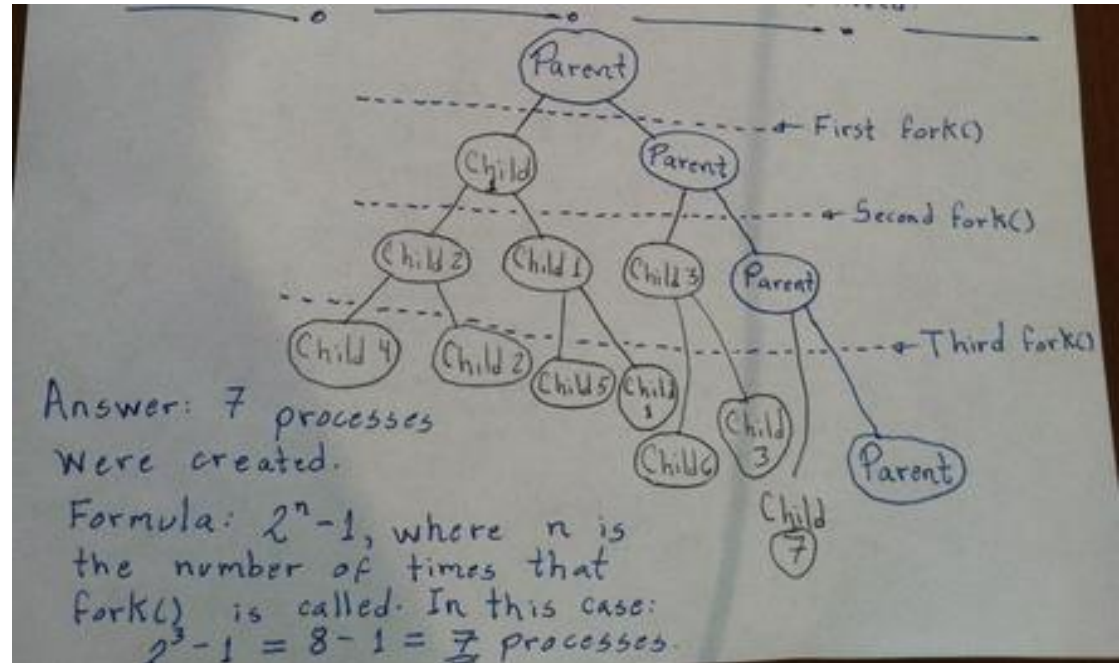 Parent
← First fork()
Child 1
Parent
← Second fork()
Child 2
Child 1
Child 3
Parent
← Third fork()
Child 4
Child 2
Child 5
Child 1
Child 6
Child 3
Child 7
Parent
Answer: 7 processes
were created.
Formula: 2ⁿ-1, where n is
the number of times that
fork() is called. In this case:
2³-1 = 8-1 = 7 processes.